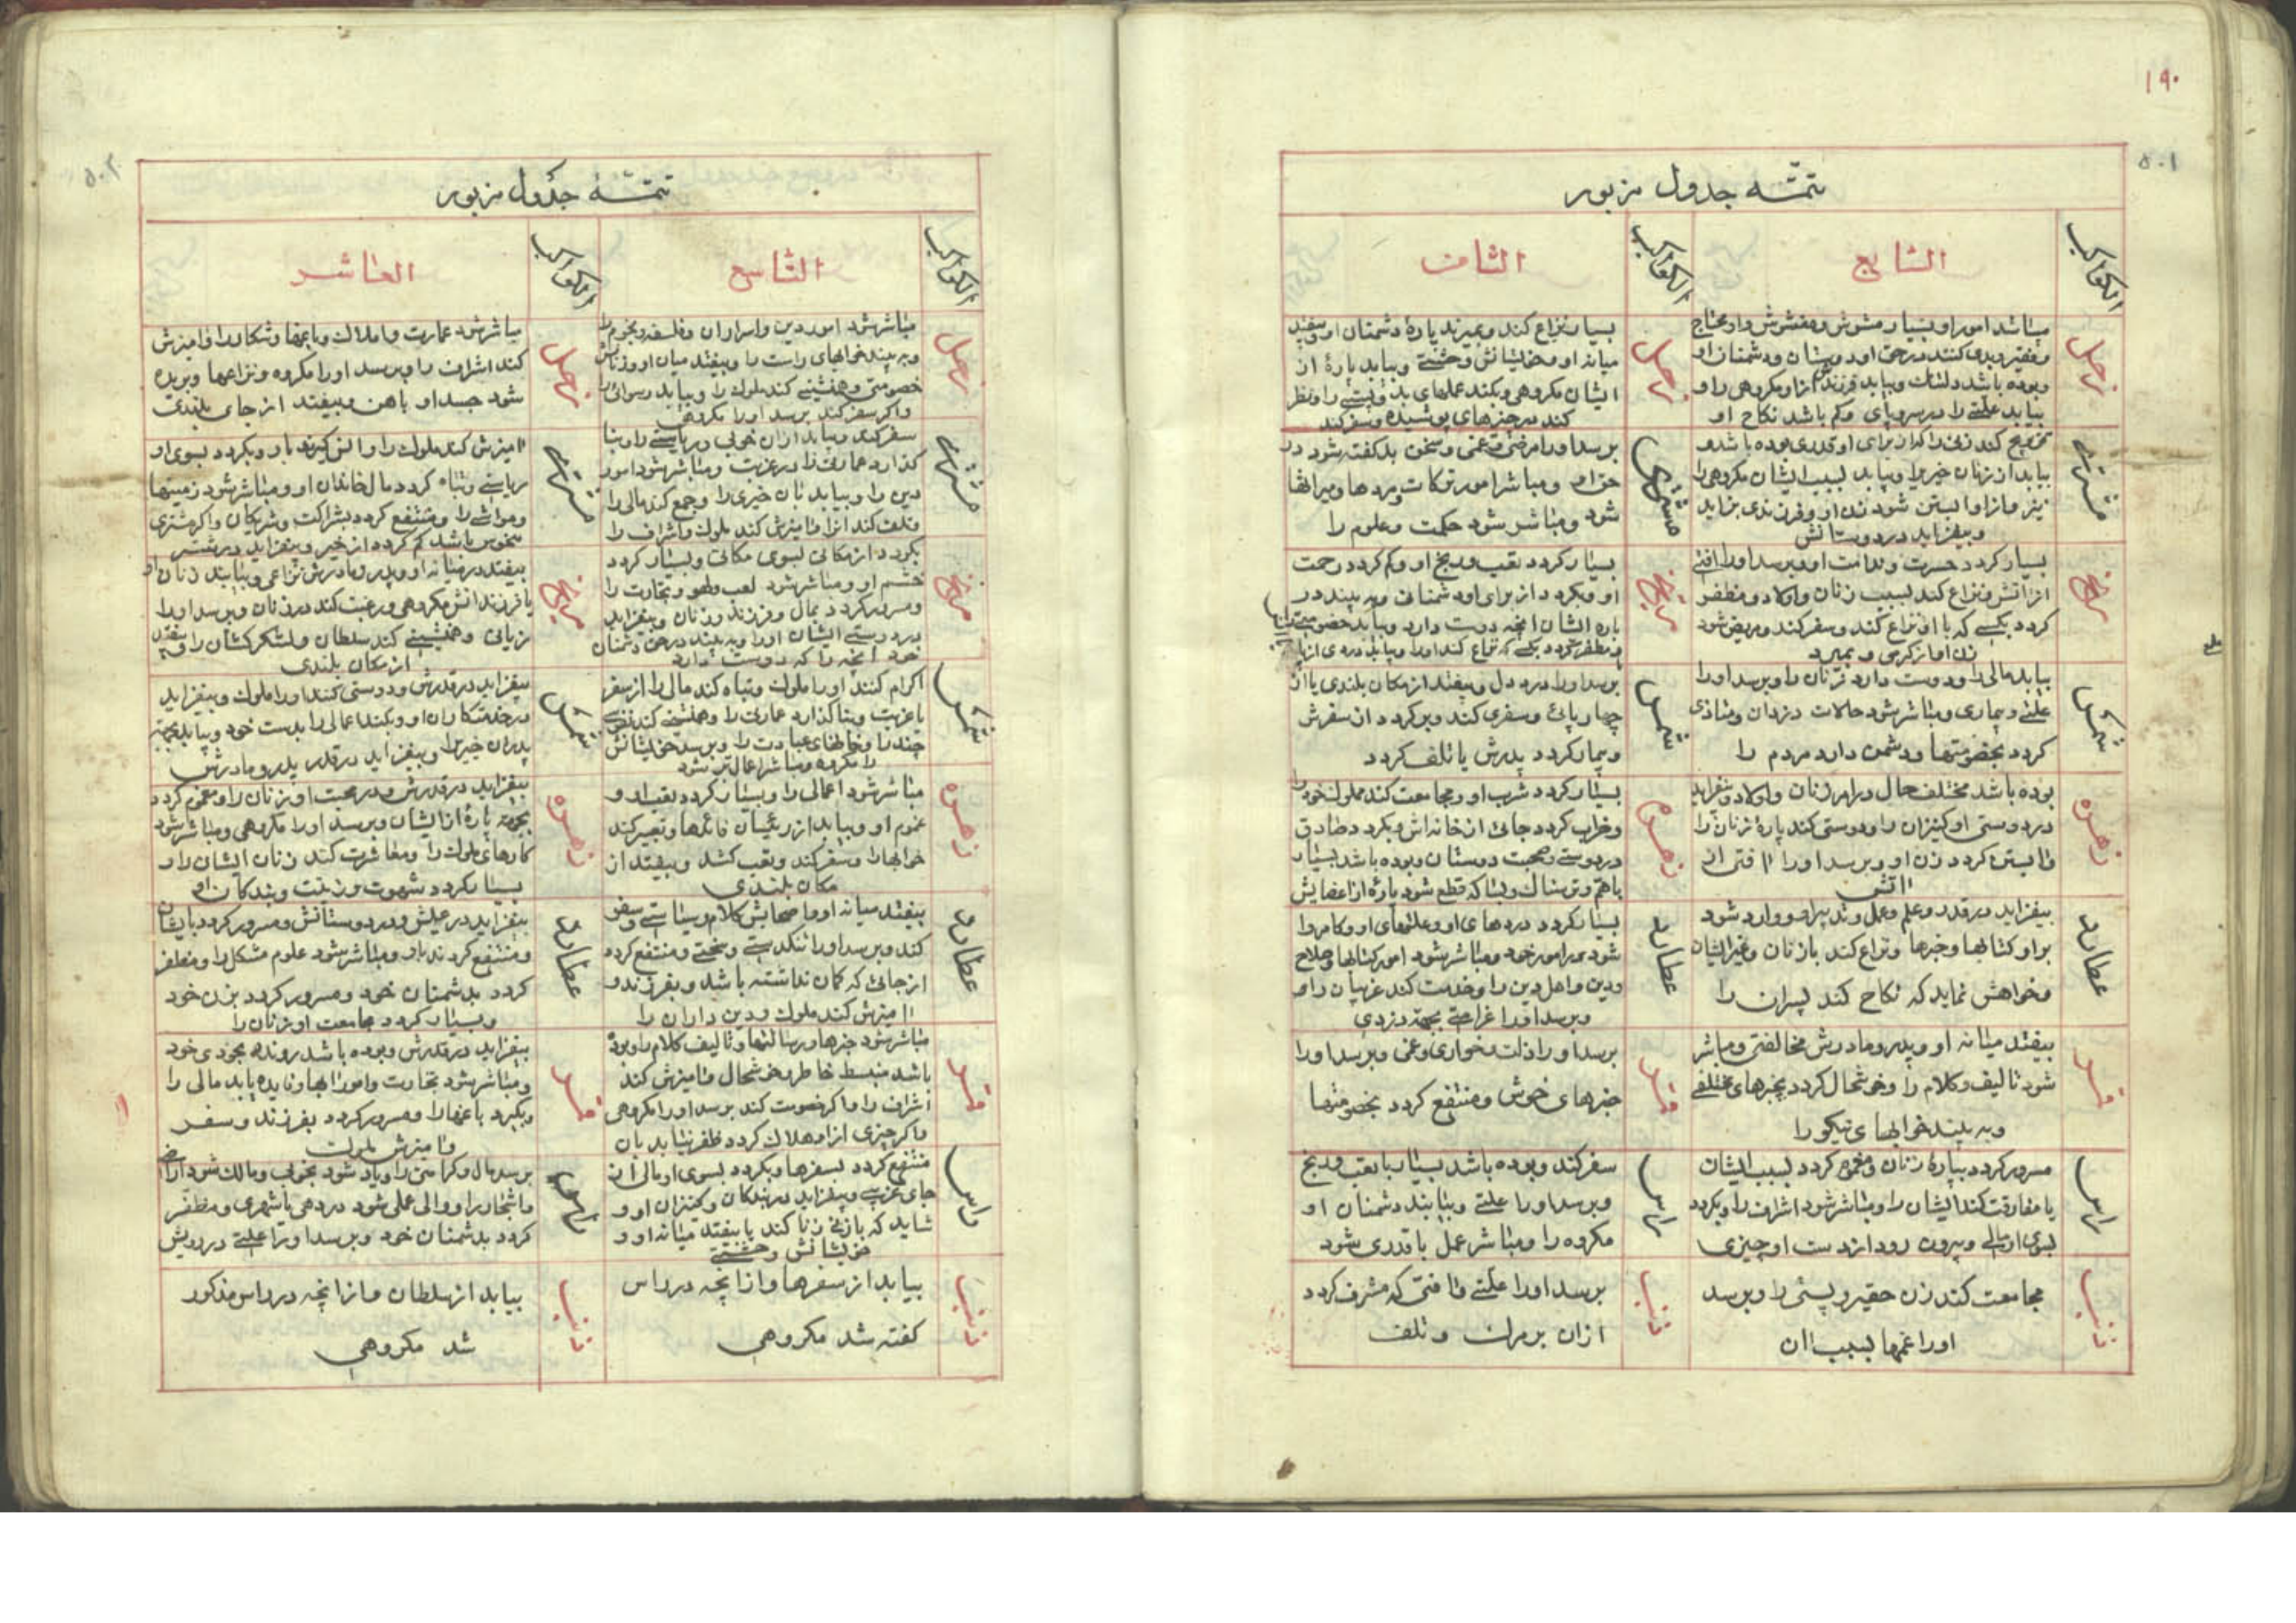 ۱۹۰
۵۰۱
تتمّـه جدول مزبور
الکواکب
السّابع
الکواکب
الثّامن
زحل
میباشد امور او بسیار مشوش و مغشوش و او محتاج
و فقیر و بدی کنند در حق او دوستان و دشمنان او
و بوده باشد دلتنك و بیابد فرزند از او مکروهی را و
بیابد علتی را در سر و پای و کم باشد نکاح او
زحل
بسیار نزاع کند و بمیرند پارهٔ دشمنان او و بیفتد
میانه او و خویشانش وحشتی و بیابد پارهٔ از
ایشان مکروهی و بکند عملهای بد و پستی را و نظر
کند در چیزهای پوشیده و سفر کند
مشتری
تزویج کند زنی را که از برای او قدری بوده باشد و
بیابد از زنان خیر را و بیابد بسبب ایشان مکروهی را
نیز و از او ابستن شود زن او و فرزندی بزاید
و بیفزاید در دوستانش
مشتری
برسد او را مرضی و غمی و سخن بد کفته شود در
حق او و مباشر امور ترکات و مردها و میراثها
شود و مباشر شود حکمت و علوم را
مریخ
بسیار کردد حسرت و ندامت او و برسد او را افتی
از اتش و نزاع کند بسبب زنان و اولاد و مظفر
کردد بکسی که با او نزاع کند و سفر کند و مریض شود
زن او از کرمی و بمیرد
مریخ
بسیار کردد تعب و رنج او و کم کردد رحمت
او و بکردد از برای او دشمنانی و به بیند در
باره ایشان انچه دوست دارد و بیابد خصومتها
و مظفر کردد بکسی که نزاع کند او را و بیابد دردی از
شمس
بیابد مالی را و دوست دارد زنان را و برسد او را
علتی و بیماری و مباشر شود حالات دزدان و متاذی
کردد بخصومتها و دشمن دارد مردم را
شمس
برسد او را درد دل و بیفتد از مکان بلندی یا از
چهارپائی و سفری کند و برکردد از سفرش
و بیمار کردد پدرش یا تلف کردد
زهره
بوده باشد مختلف حال در امر زنان و اولاد و بیفزاید
در دوستی او کنیزان را و دوستی کند پارهٔ زنان را
و ابستن کردد زن او و برسد او را افتی از
اتش
زهره
بسیار کردد شرب او و مجامعت کند مملوك خود را
و خراب کردد جائی از خانه اش و بکردد صادق
در دوستی و صحبت دوستان و بوده باشد بسیار
با هم و ترسناك و بسا که قطع شود پارهٔ از اعضایش
عطارد
بیفزاید در قدر و علم و عمل و تدبیر او و وارد شود
بر او کتابها و خبرها و نزاع کند با زنان و غیر ایشان
و خواهش نماید که نکاح کند پسران را
عطارد
بسیار کردد دردهای او و علتهای او و کامروا
شود در امور خود و مباشر شود امور کتابها و صلاح
و دین و اهل دین را و خدمت کند غریبان را و
و برسد او را غرامتی بجهة دزدی
قمر
بیفتد میانه او و پدر و مادرش مخالفتی و مباشر
شود تالیف و کلام را و خوشحال کردد بچیزهای مختلفی
و به بیند خوابهای نیکو را
قمر
برسد او را ذلت و خواری و غمی و برسد او را
خبرهای خوش و منتفع کردد بخصومتها
راس
مسرور کردد بپارهٔ زنان و مغموم کردد بسبب ایشان
یا مفارقت کند ایشان را و مباشر شود اشراف را و بکردد
بسوی او مالی و بیرون رود از دست او چیزی
راس
سفر کند و بوده باشد بسیار با تعب و رنج
و برسد او را علتی و بیابند دشمنان او
مکروه را و مباشر عمل با قدری شود
ذنب
مجامعت کند زن حقیر و پستی را و برسد
او را غمها بسبب ان
ذنب
برسد او را علتی و افتی که مشرف کردد
از ان بر مرك و تلف
۵۰۲
تتمّـه جدول مزبور
الکواکب
التّاسع
الکواکب
العاشر
زحل
مباشر شود امور دین و اسرار ان و فلسفه و نجوم را
و به بیند خوابهای راست را و بیفتد میان او و زنانش
خصومتی و همنشینی کند ملوك را و بیابد رسوائی را
و اکر سفر کند برسد او را مکروهی
زحل
مباشر شود عمارت و املاك و باغها و شکار را و امیزش
کند اشراف را و برسد او را مکروه و نزاعها و بریده
شود جسد او باهن و بیفتد از جای بلندی
مشتری
سفر کند و بیابد از ان خوبی و ریاستی را و بنا
کذارد عمارتی را در غربت و مباشر شود امور
دین را و بیابد بان خیری را و جمع کند مالی را
و تلف کند انرا و امیزش کند ملوك و اشراف را
مشتری
امیزش کند ملوك را و انس کیرند باو و بکردد بسوی او
ریاستی و تباه کردد مال خاندان او و مباشر شود زمینها
و مواشی را و منتفع کردد بشراکت و شریکان و اکر مشتری
منحوس باشد کم کردد از خیر و بیفزاید در شر
مریخ
بکردد از مکانی بسوی مکانی و بسیار کردد
خشم او و مباشر شود لعب و لهو و تجارت را
و مسرور کردد بمال و فرزند و زنان و بیفزاید
در دوستی ایشان او را و به بیند در حق دشمنان
خود انچه را که دوست دارد
مریخ
بیفتد در میانه او و پدر و مادرش نزاعی و بیابند زنان او
یا فرزندانش مکروهی و رغبت کند در زنان و برسد او را
زیانی و همنشینی کند سلطان و لشکرکشان را و بیفتد
از مکان بلندی
شمس
اکرام کنند او را ملوك و تباه کند مالی را از سفر
یا غربت و بنا کذارد عمارتی را و همنشینی کند
چند را و خانهای عبادت را و برسد خویشانش
را مکروه و مباشر اعمال تن شود
شمس
بیفزاید در قدرش و دوستی کنند او را ملوك و بیفزاید
در خدمتکاران او و بکند اعمالی را بدست خود و بیابد بجهة
پدران خیر را و بیفزاید در قدر پدر و مادرش
زهره
مباشر شود اعمالی را و بسیار کردد تعب او و
غموم او و بیابد از رئیسان فائدها و تعبیر کند
خوابها را و سفر کند و تعب کشد و بیفتد از
مکان بلندی
زهره
بیفزاید در قدرش و در محبت او زنان را و مغموم کردد
بجهة پارهٔ از ایشان و برسد او را مکروهی و مباشر شود
کارهای ملوك را و معاشرت کند زنان ایشان را و
بسیار کردد شهوت و زینت و بندکان او
عطارد
بیفتد میانه او و اصحابش کلام و سیاستی و سفر
کند و برسد او را تنکدستی و سختی و منتفع کردد
از جائی که کمان نداشته باشد و بفرزند و
امیزش کند ملوك و دین داران را
عطارد
بیفزاید در عیش و در دوستانش و مسرور کردد بایشان
و منتفع کردند باو و مباشر شود علوم مشکل را و مظفر
کردد بدشمنان خود و مسرور کردد بزن خود
و بسیار کردد مجامعت او زنان را
قمر
مباشر شود خبرها و رسالتها و تالیف کلام را و بوده
باشد منبسط خاطر و خوشحال و امیزش کند
اشراف را و اکر خصومت کند برسد او را مکروهی
و اکر چیزی از او هلاك کردد ظفر نیابد بان
قمر
بیفزاید در قدرش و بوده باشد رونده بخودی خود
و مباشر شود تجارت و امور ابها و فایده یابد مالی را
و بکیرد باغها را و مسرور کردد بفرزند و سفر
و امیزش ملوك
راس
منتفع کردد بسفرها و بکردد بسوی او مالی از
جای غریبی و بیفزاید در بندکان و کنیزان او و
شاید که با زنی زنا کند یا بیفتد میانه او و
خویشانش وحشتی
راس
برسد مال و کرامتی را و یاد شود بخوبی و مالك شود اراضی
و اشجار را و والی عملی شود در دهی یا شهری و مظفر
کردد بدشمنان خود و برسد او را علتی در رویش
ذنب
بیابد از سفرها و از انچه در راس
کفته شد مکروهی
ذنب
بیابد از سلطان و از انچه در راس مذکور
شد مکروهی